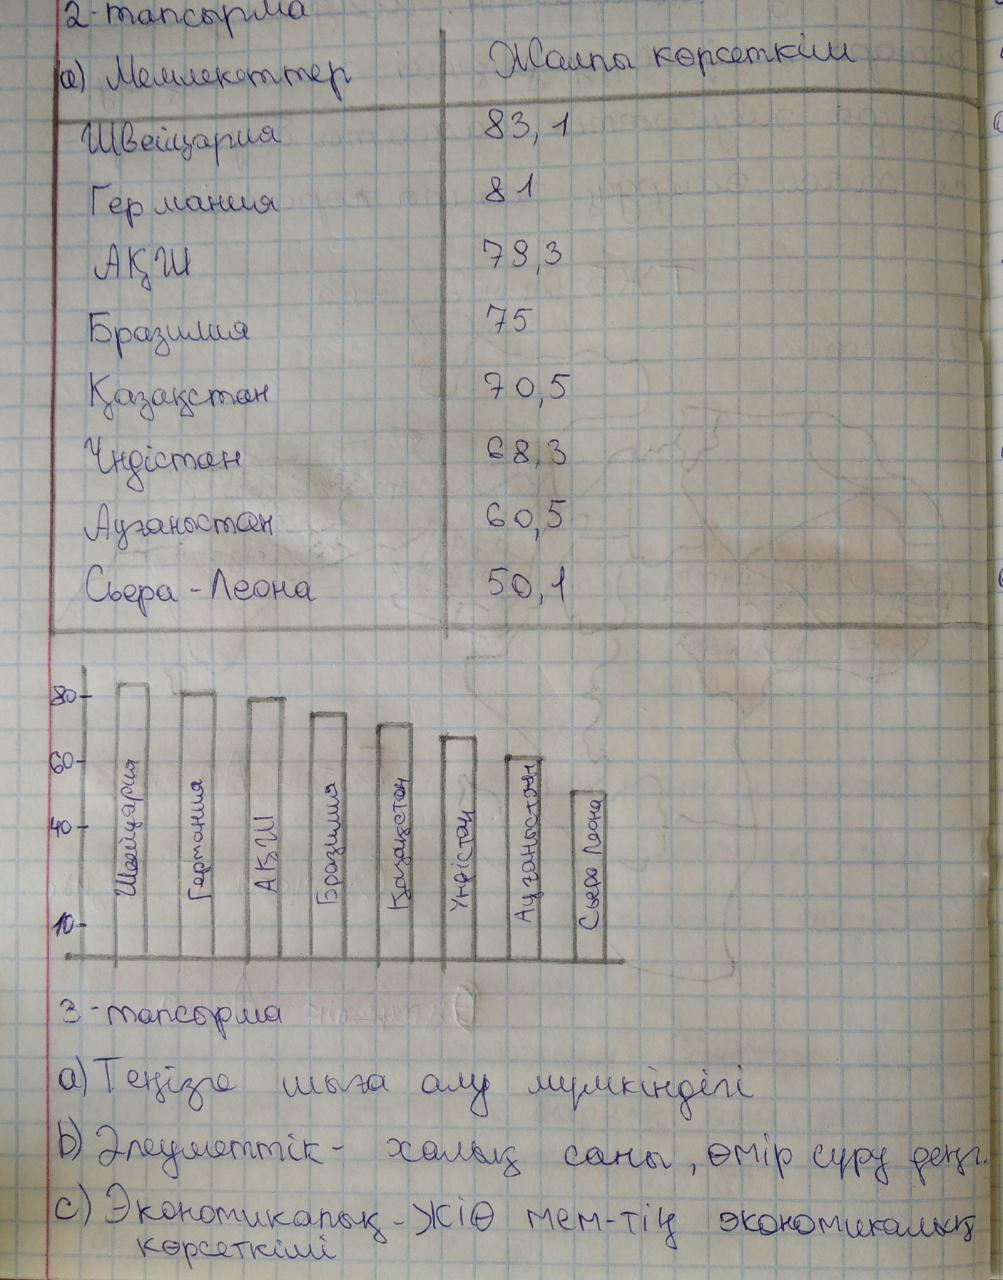 2-тапсырма
а) Мемлекеттер Жалпы көрсеткіш
Швейцария 83,1
Германия 81
АҚШ 79,3
Бразилия 75
Қазақстан 70,5
Үндістан 68,3
Ауғаныстан 60,5
Сьера-Леона 50,1
80
60
40
10
Швейцария
Германия
АҚШ
Бразилия
Қазақстан
Үндістан
Ауғаныстан
Сьера Леона
3-тапсырма
а) Теңізге шыға алу мүмкіндігі
b) Әлеуметтік - халық саны, өмір сүру деңг.
c) Экономикалық - ЖІӨ мем-тің экономикалық
көрсеткіші